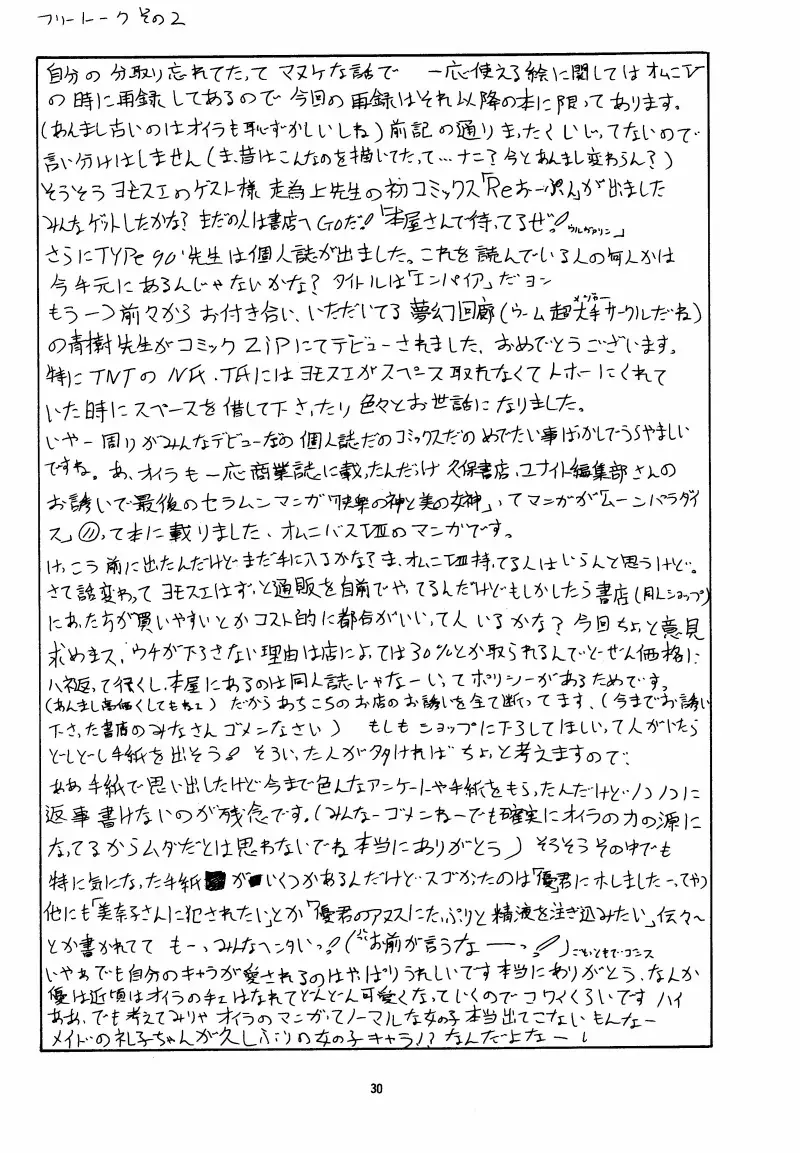 フリートーク その2
自分の分取り忘れてたってマヌケな話で 一応使える絵に関してはオムニⅣ
の時に再録してあるので今回の再録はそれ以降の本に限ってあります。
(あんまし古いのはオイラも恥ずかしいしね)前記の通りまったくいじってないので
言い分けはしません(ま、昔はこんなのを描いてたって…ナニ?今とあんまし変わらん?)
そうそうヨモスエのゲスト様 走為上先生の初コミックス「Reおーぷん」が出ました
みんなゲットしたかな?まだの人は書店へGoだ!「本屋さんで待ってるぜ!ウルヴァリン」
さらにTYPe90'先生は個人誌が出ました。これを読んでいる人の何人かは
今手元にあるんじゃないかな?タイトルは「エンパイア」だヨン
もう一つ前々からお付き合い、いただいてる夢幻回廊(ウーム超大手サークルだね)
の青樹先生がコミックZiPにてデビューされました、おめでとうございます。
特にTNTのNF.TFにはヨモスエがスペース取れなくてトホーにくれて
いた時にスペースを借して下さったり色々とお世話になりました。
いやー周りがみんなデビューだの個人誌だのコミックスだのめでたい事ばかしでうらやましい
ですね。あ、オイラも一応商業誌に載ったんだっけ 久保書店、ユナイト編集部さんの
お誘いで最後のセラムンマンガ「快楽の神と美の女神」ってマンガが「ムーンパラダイ
ス」⑪って本に載りました、オムニバスⅧのマンガです。
けっこう前に出たんだけどまだ手に入るかな?ま、オムニⅧ持ってる人はいらんと思うけど。
さて話変わってヨモスエはずっと通販を自前でやってるんだけどもしかしたら書店(同人ショップ)
にあった方が買いやすいとかコスト的に都合がいいって人いるかな?今回ちょっと意見
求めまス、ウチが下ろさない理由は店によっては30%とか取られるんでどーせん価格に
ハネ返って行くし、本屋にあるのは同人誌じゃなーいってポリシーがあるためです。
(あんまし高価くしてもねェ)だからあちこちのお店のお誘いを全て断ってます、(今までお誘い
下さった書店のみなさんゴメンなさい) もしもショップに下ろしてほしいって人がいたら
どしどし手紙を出そう! そういった人が多ければちょっと考えますので、
ああ手紙で思い出したけど今まで色んなアンケートや手紙をもらったんだけどノコノコに
返事書けないのが残念です。(みんなーゴメンねーでも確実にオイラの力の源に
なってるからムダだとは思わないでね本当にありがとう)そうそうその中でも
特に気になった手紙がいくつかあるんだけどスゴかったのは「優君にホレましたーってやつ
他にも「美奈子さんに犯されたい」とか「優君のアヌスにたっぷりと精液を注ぎ込みたい」伝々〜
とか書かれてて もーっみんなヘンタいっ!(お前が言うなーっ!)
いやぁでも自分のキャラが愛されるのはやっぱりうれしいです本当にありがとう、なんか
優は近頃はオイラのチェはなれてどんどん可愛くなっていくのでコワイくらいです ハイ
ああ、でも考えてみりゃオイラのマンガってノーマルな女の子本当出てこないもんなー
メイドの礼子ちゃんが久しぶりの女の子キャラ!?なんだよなー
30